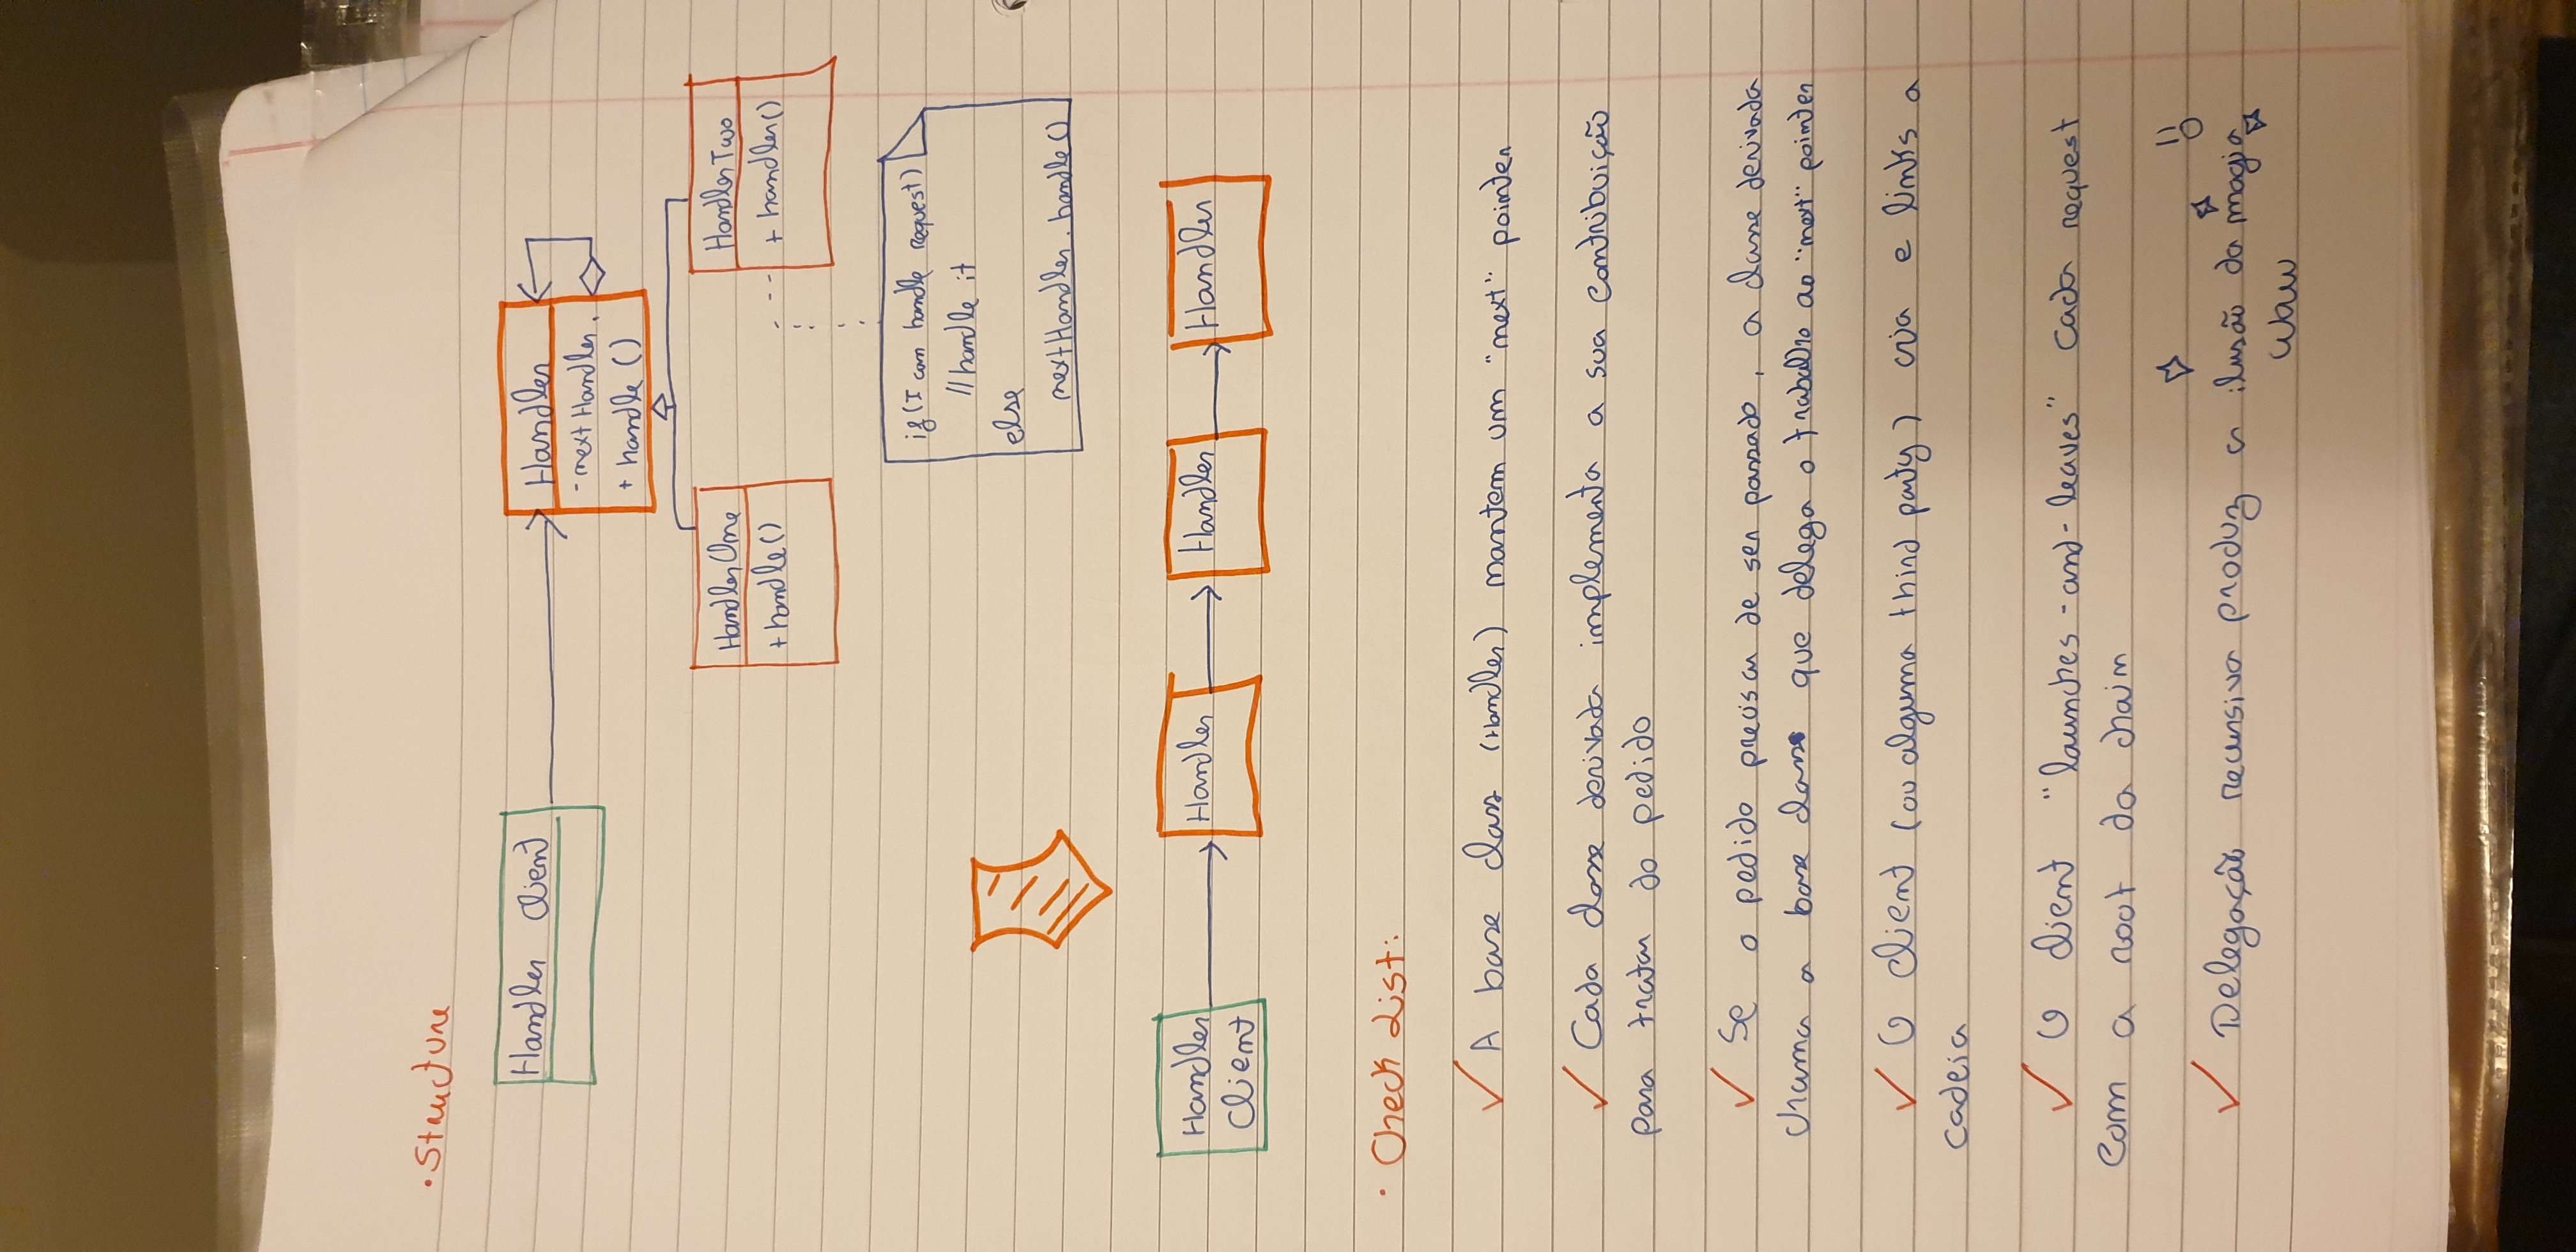 • Structure
Handler Client
Handler
- nextHandler.
+ handle ()
HandlerOne
HandlerTwo
+ handle()
+ handler()
if (I can handle request)
// handle it
else
nextHandler. handle()
Handler
Client
Handler
Handler
Handler
• Check List:
✓ A base class (Handler) mantem um "next" pointer
✓ Cada classe derivada implementa a sua contribuição
para tratar do pedido
✓ Se o pedido precisar de ser passado, a classe derivada
chama a base class que delega o trabalho ao "next" pointer
✓ O client (ou alguma third party) cria e links a
cadeia
✓ O client "launches-and-leaves" cada request
com a root da chain
✓ Delegação recursiva produz a ilusão da magia
waw